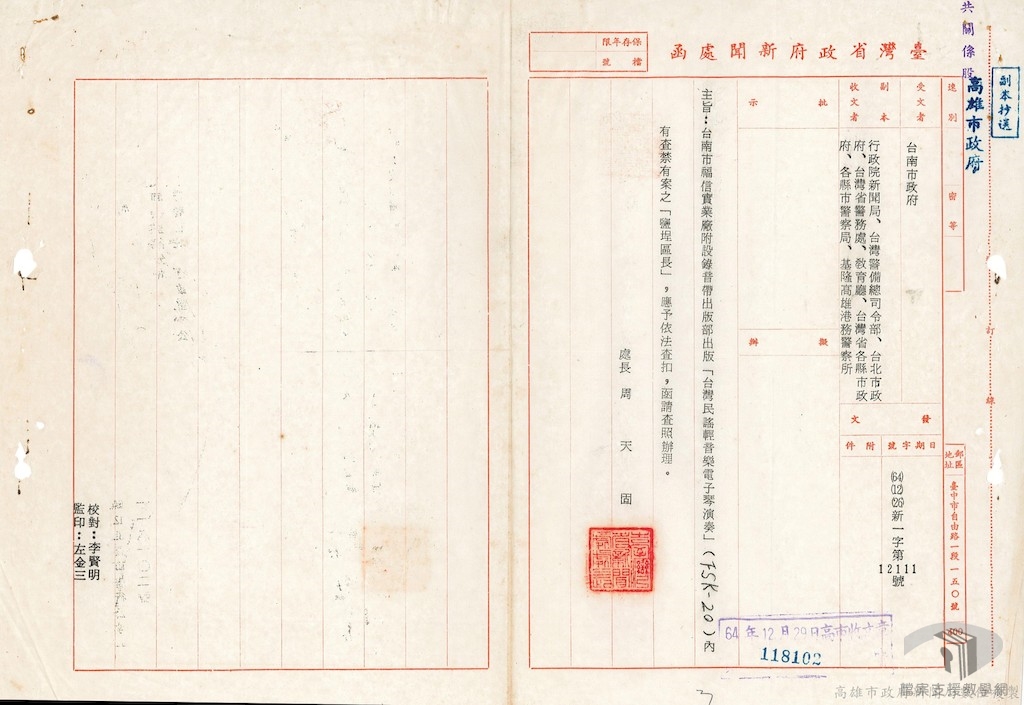 臺灣省政府新聞處函
保存年限
檔號
共關係股
副本抄送
高雄市政府
速別
密等
受文者
台南市政府
副本收文者
行政院新聞局、台灣警備總司令部、台北市政
府、台灣省警務處、敎育廳、台灣省各縣市政
府、各縣市警察局、基隆高雄港務警察所
批示
擬辦
發文
日期字號附件
(64)(12)(26)新一字第12111號
郵區
地址
400
臺中市自由路一段一五〇號
訂線
主旨：台南市福信實業廠附設錄音帶出版部出版「台灣民謠輕音樂電子琴演奏」(FSK-20)內
有査禁有案之「鹽埕區長」，應予依法査扣，函請査照辦理。
處長 周天固
64年12月29日高市收文章
118102
校對：李賢明
監印：左金三
檔案支援教學網